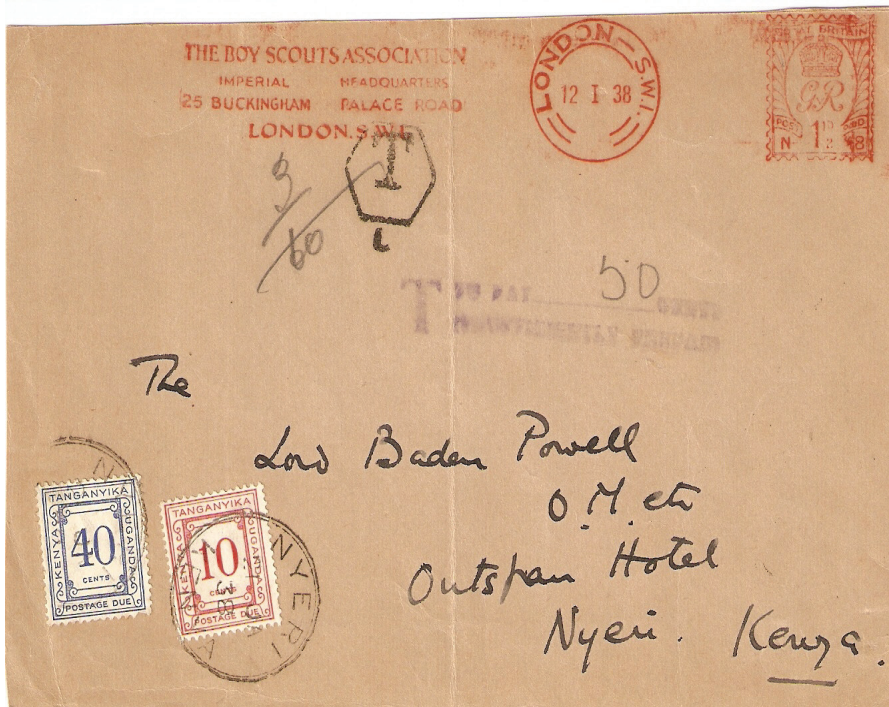 THE BOY SCOUTS ASSOCIATION
IMPERIAL HEADQUARTERS
25 BUCKINGHAM PALACE ROAD
LONDON. S.W.1.
LONDON – S.W.1.
12 I 38
GREAT BRITAIN
GR
1½D
N 8
T
L
3/60
50
T
The
Lord Baden Powell
O.M. etc
Outspan Hotel
Nyeri. Kenya.
TANGANYIKA
KENYA
UGANDA
40
CENTS
POSTAGE DUE
TANGANYIKA
KENYA
UGANDA
10
CENTS
POSTAGE DUE
NYERI